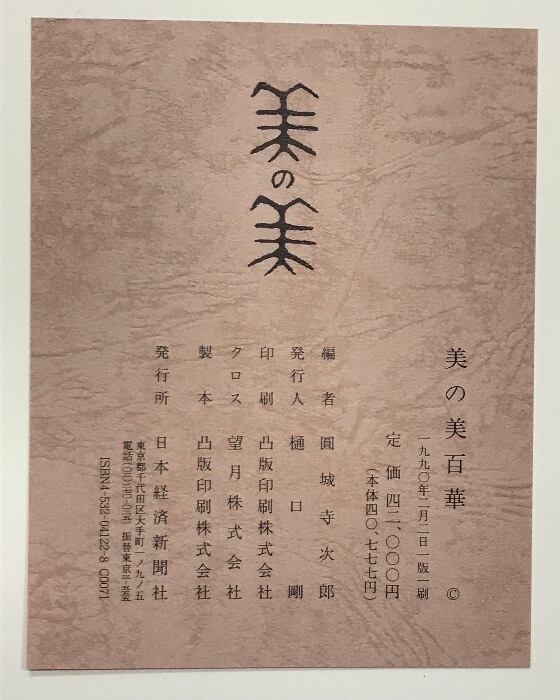 美の美
美の美百華 ©
一九九〇年二月二日一版一刷
定価 四二、〇〇〇円
（本体四〇、七七七円）
編者 圓城寺次郎
発行人 樋口剛
印刷 凸版印刷株式会社
クロス 望月株式会社
製本 凸版印刷株式会社
発行所 日本経済新聞社
東京都千代田区大手町一ノ九ノ五
振替東京
ISBN4-532-04122-8 C0071